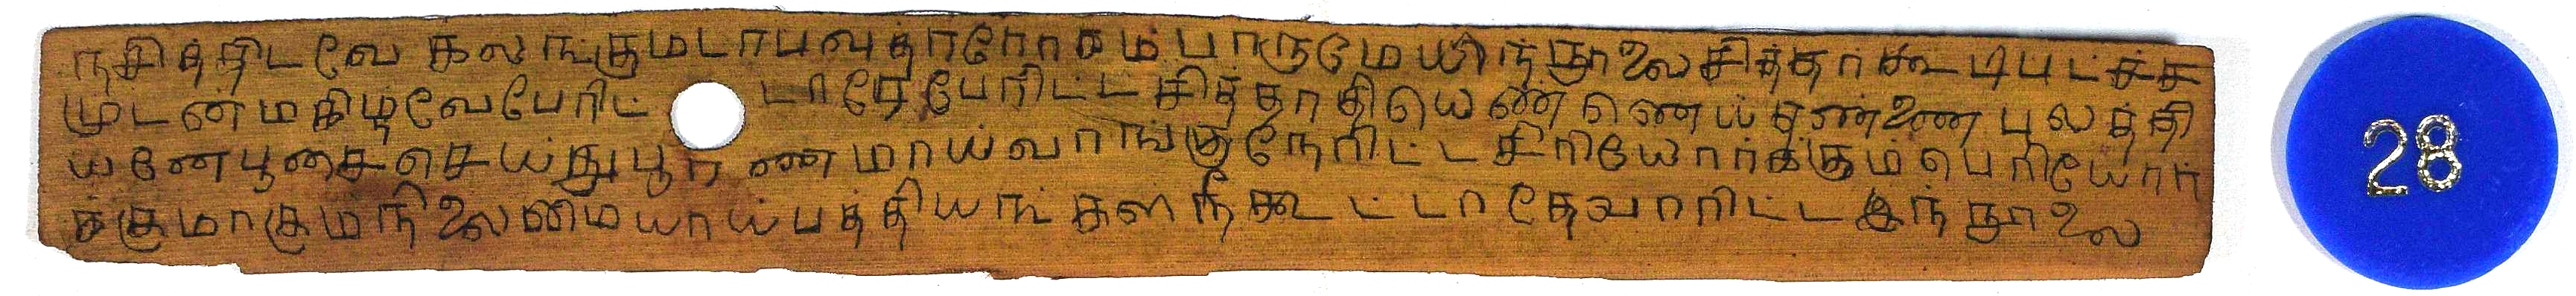 நசித்திடவே கலங்குமடாபவுதரரோகம் பாருமேயிந்நூலைசித்தர்கூடிபட்சத்
முடன்மகிழ்வேபேரிட்டாரேபேரிட்டசித்தாதியெண்ணெய்தண்ணை புலத்தி
யனேபூசைசெய்துபூரணமாய்வாங்குநேரிட்டசிரியோர்க்கும்பெரியோர்
க்குமாகும்நிலைமையாய்பத்தியங்கள்நீகூட்டாதேவாரிட்டஇந்நூலை
28